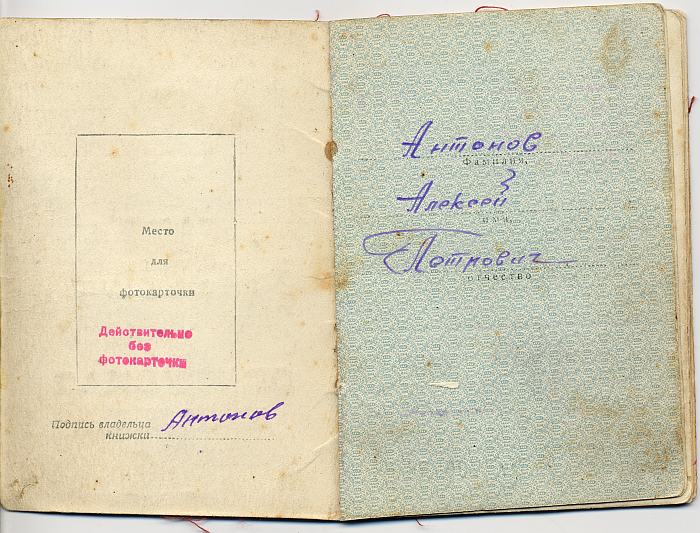 Место
для
фотокарточки
Действительно
без
фотокарточки
Подпись владельца
книжки
Антонов
Антонов
Фамилия,
Алексей
имя,
Петрович
отчество